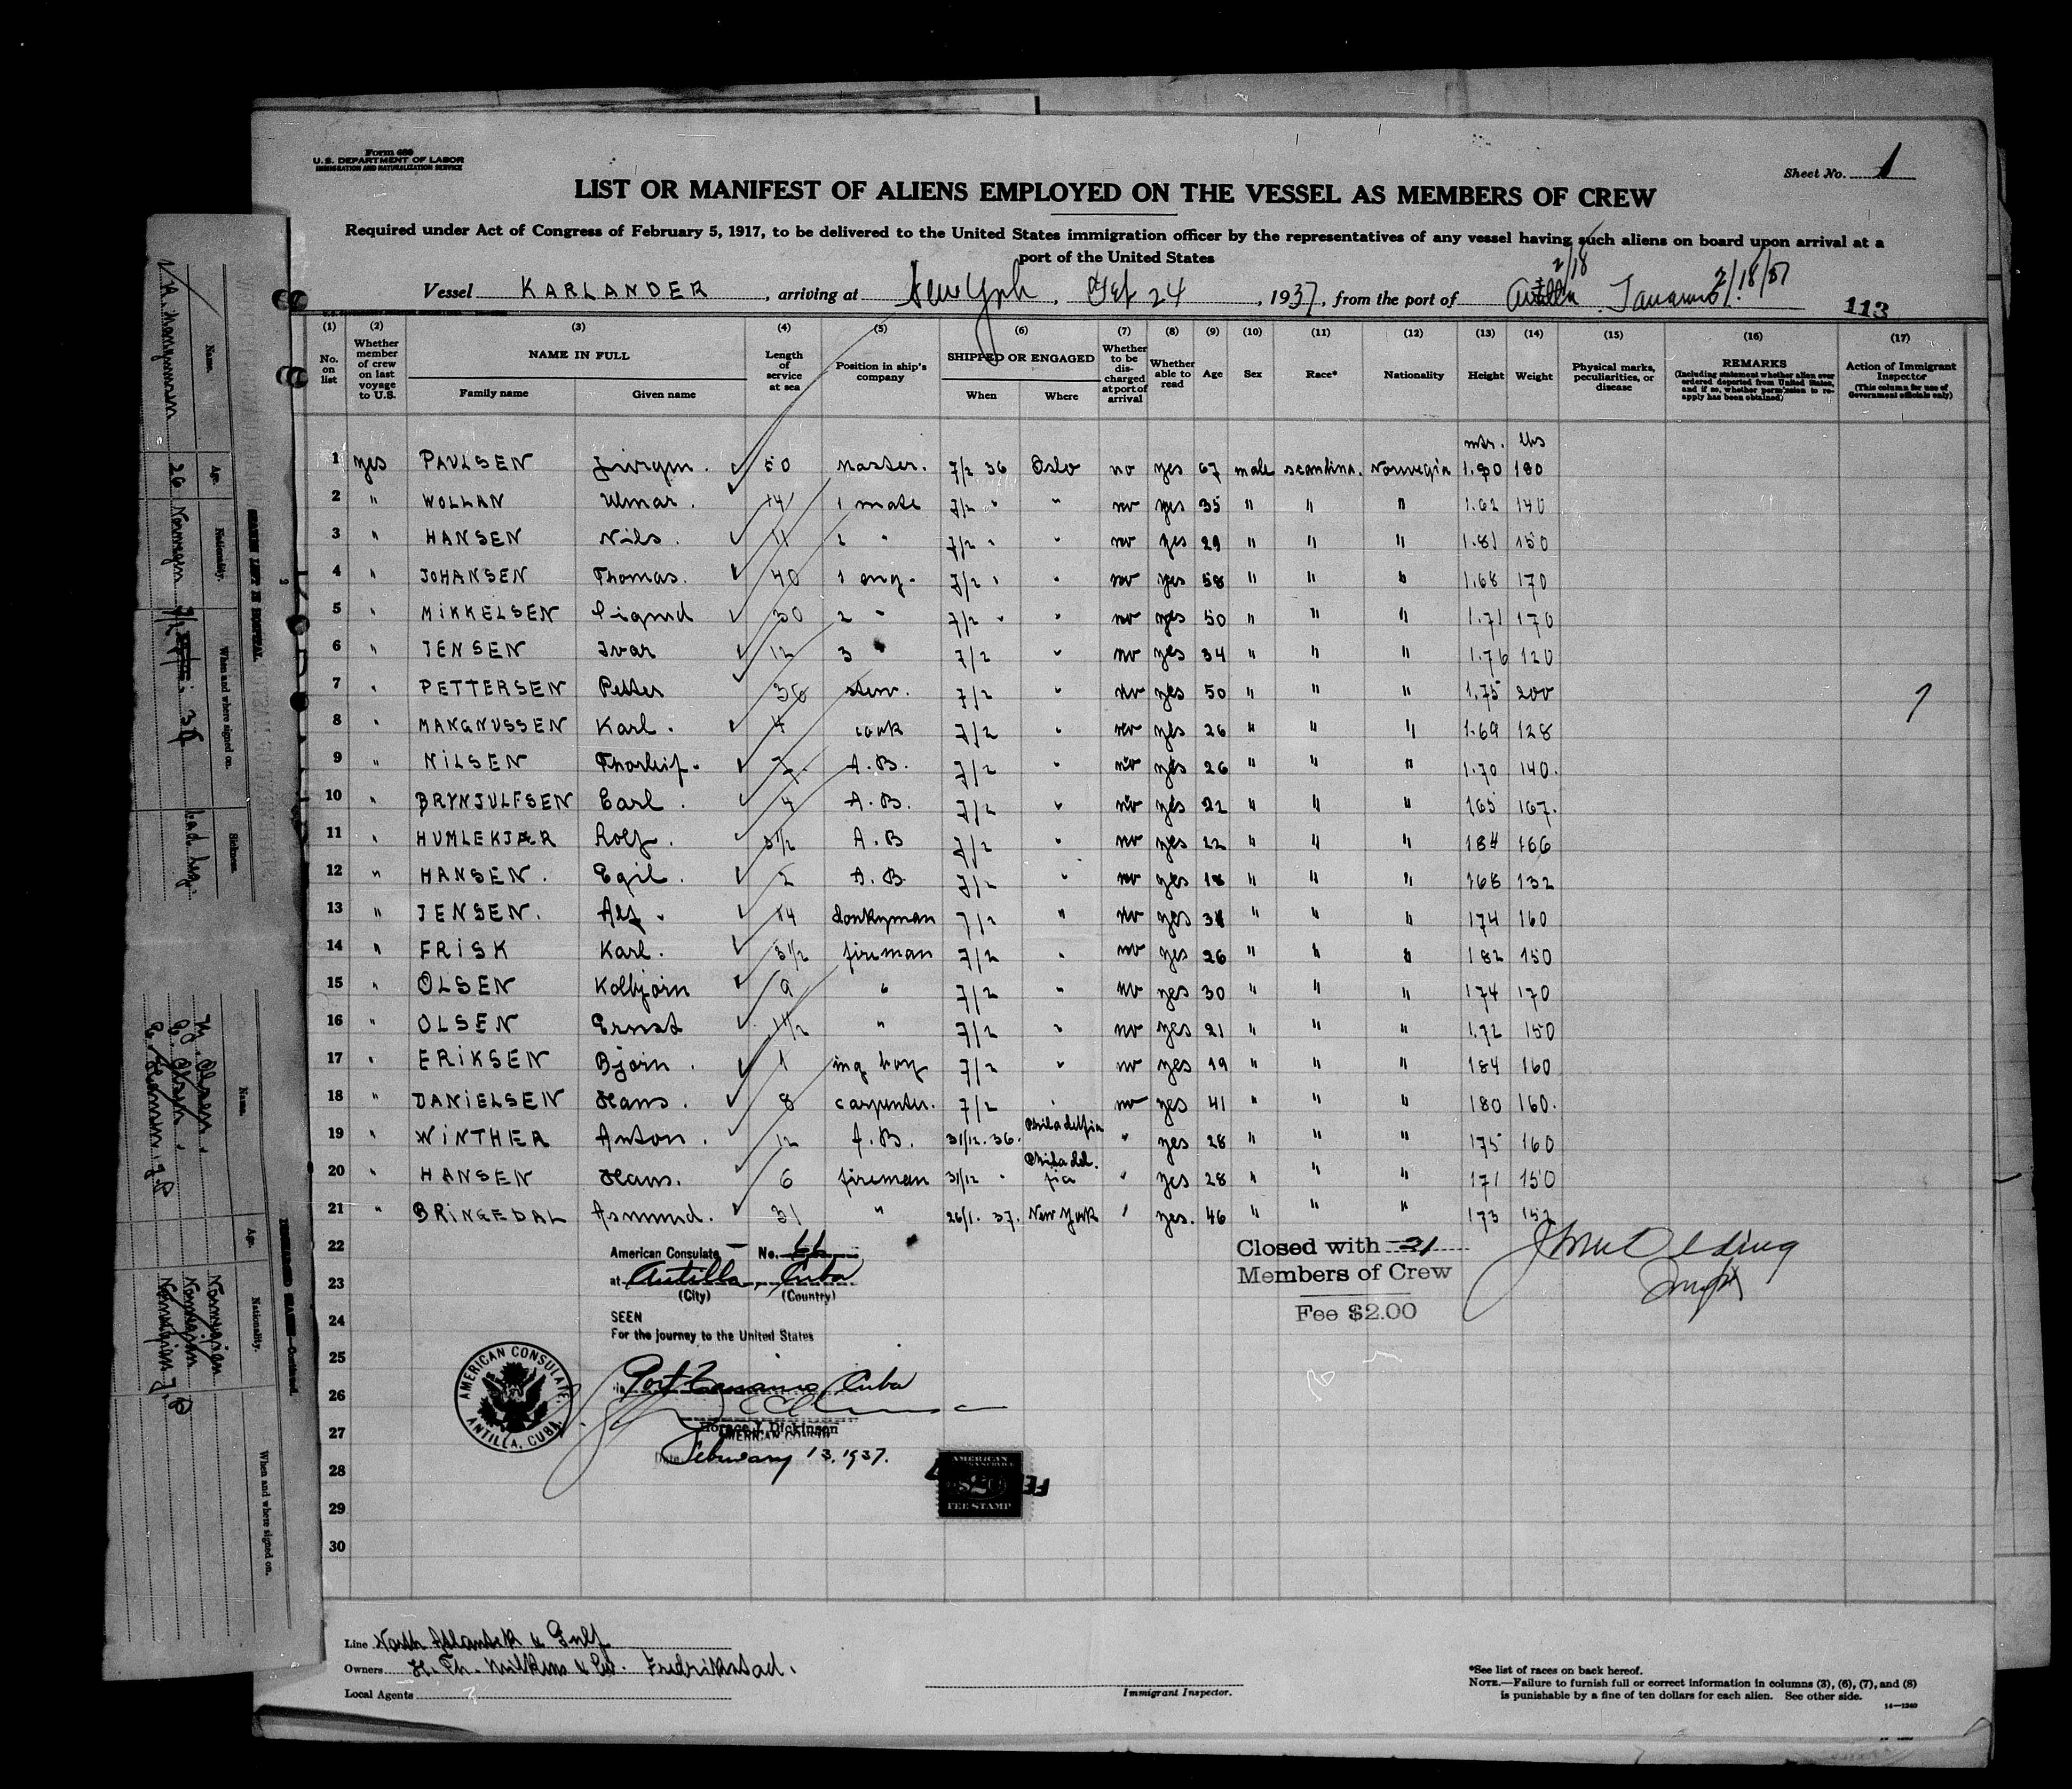 Form 689
U.S. DEPARTMENT OF LABOR
IMMIGRATION AND NATURALIZATION SERVICE
Sheet No. 1
LIST OR MANIFEST OF ALIENS EMPLOYED ON THE VESSEL AS MEMBERS OF CREW
Required under Act of Congress of February 5, 1917, to be delivered to the United States immigration officer by the representatives of any vessel having such aliens on board upon arrival at a
port of the United States
2/18 2/18/37
Vessel KARLANDER, arriving at New York, Feb 24, 1937, from the port of Antilla Tanamo
113
(1) (2) (3) (4) (5) (6) (7) (8) (9) (10) (11) (12) (13) (14) (15) (16) (17)
No. on list Whether member of crew on last voyage to U.S. NAME IN FULL Family name Given name Length of service at sea Position in ship's company SHIPPED OR ENGAGED When Where Whether to be discharged at port of arrival Whether able to read Age Sex Race* Nationality Height Weight Physical marks, peculiarities, or disease REMARKS (Including statement whether alien ever ordered deported from United States, and if so, whether permission to reapply has been obtained) Action of Immigrant Inspector (This column for use of Government officials only)
mtr. lbs
1 yes PAULSEN 50 Master. 7/2 36 Oslo no yes 67 male scandina. Norwegia 1.80 180
2 " WOLLAN 14 1 mate 7/2 " " no yes 35 " " " 1.62 140
3 " HANSEN Nils. 11 2 " 7/2 " " no yes 29 " " " 1.81 150
4 " JOHANSEN Thomas. 40 1 eng. 7/2 " " no yes 58 " " " 1.68 170
5 " MIKKELSEN Sigurd 30 2 " 7/2 " " no yes 50 " " " 1.71 170
6 " JENSEN Ivar 12 3 " 7/2 " no yes 34 " " " 1.76 120
7 " PETTERSEN Petter 36 stew. 7/2 " no yes 50 " " " 1.75 200
8 " MANGNUSSEN Karl. 4 cook 7/2 " no yes 26 " " " 1.69 128
9 " NILSEN Thorleif. 7. A.B. 7/2 " no yes 26 " " " 1.70 140.
10 " BRYNJULFSEN Earl. 4 A.B. 7/2 " no yes 22 " " " 165 167.
11 " HUMLEKJÆR Rolf. 3 1/2 A.B 7/2 " no yes 22 " " " 184 166
12 " HANSEN. Egil. 2 A.B 7/2 " no yes 18 " " " 168 132
13 " JENSEN. Alf. 14 donkyman 7/2 " no yes 38 " " " 174 160
14 " FRISK Karl. 3 1/2 fireman 7/2 " no yes 26 " " " 182 150
15 " OLSEN Kolbjørn 9 " 7/2 " no yes 30 " " " 174 170
16 " OLSEN Ernst 1 1/2 " 7/2 " no yes 21 " " " 1.72 150
17 " ERIKSEN Bjørn. 1 ing boy 7/2 " no yes 19 " " " 184 160
18 " DANIELSEN Hans. 8 carpenter. 7/2 " no yes 41 " " " 180 160.
19 " WINTHER Anton. 12 A.B. 31/12. 36. Philadelfia " yes 28 " " " 175 160
20 " HANSEN Hans. 6 fireman 31/12 " Philadelfia " yes 28 " " " 171 150
21 " BRINGEDAL Asmund. 31 " 26/1. 37. New York " yes. 46 " " " 173 152
22
23
24
25
26
27
28
29
30
American Consulate No. 66
at Antilla, Cuba
(City) (Country)
SEEN
For the journey to the United States
in Port Tanamo, Cuba
Horace J. Dickinson
AMERICAN CONSUL
Date February 13, 1937.
AMERICAN CONSULATE
ANTILLA, CUBA
AMERICAN
FEE STAMP
Closed with 21
Members of Crew
Fee $2.00
Line North Atlantik & Gulf
Owners Fredrikstad.
Local Agents
Immigrant Inspector.
*See list of races on back hereof.
NOTE.—Failure to furnish full or correct information in columns (3), (6), (7), and (8)
is punishable by a fine of ten dollars for each alien. See other side.
14—1240
Name. Age. Nationality. When and where signed on. Sickness.
26 Norwegian
Name. Age. Nationality. When and where signed on.
Norwegian
Norwegian
Norwegian